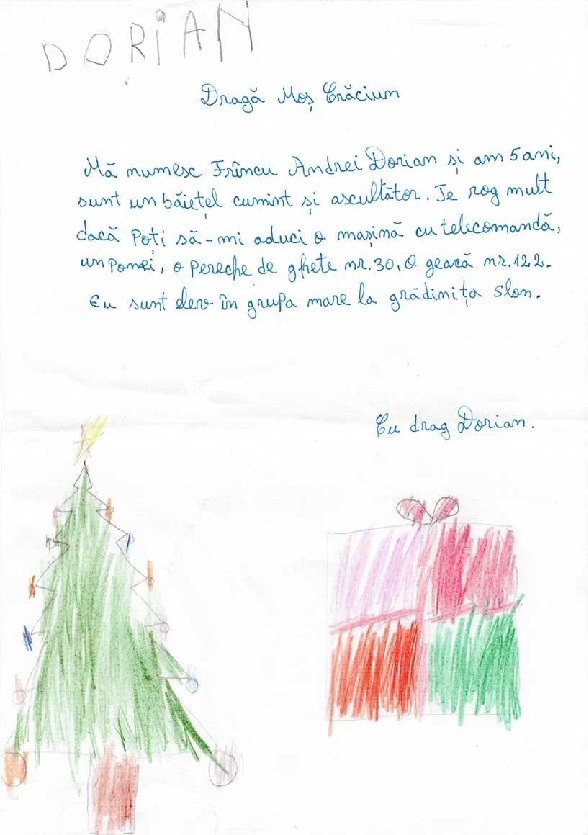 DORiAN
Dragă Moș Crăciun
Mă numesc Frîncu Andrei Dorian și am 5 ani,
sunt un băiețel cumint și ascultător. Te rog mult
dacă Poți să-mi aduci o mașină cu telecomandă,
un Ponei, o Pereche de ghete nr. 30, O geacă nr. 122.
Eu sunt elev în grupa mare la grădinița Slon.
Cu drag Dorian.